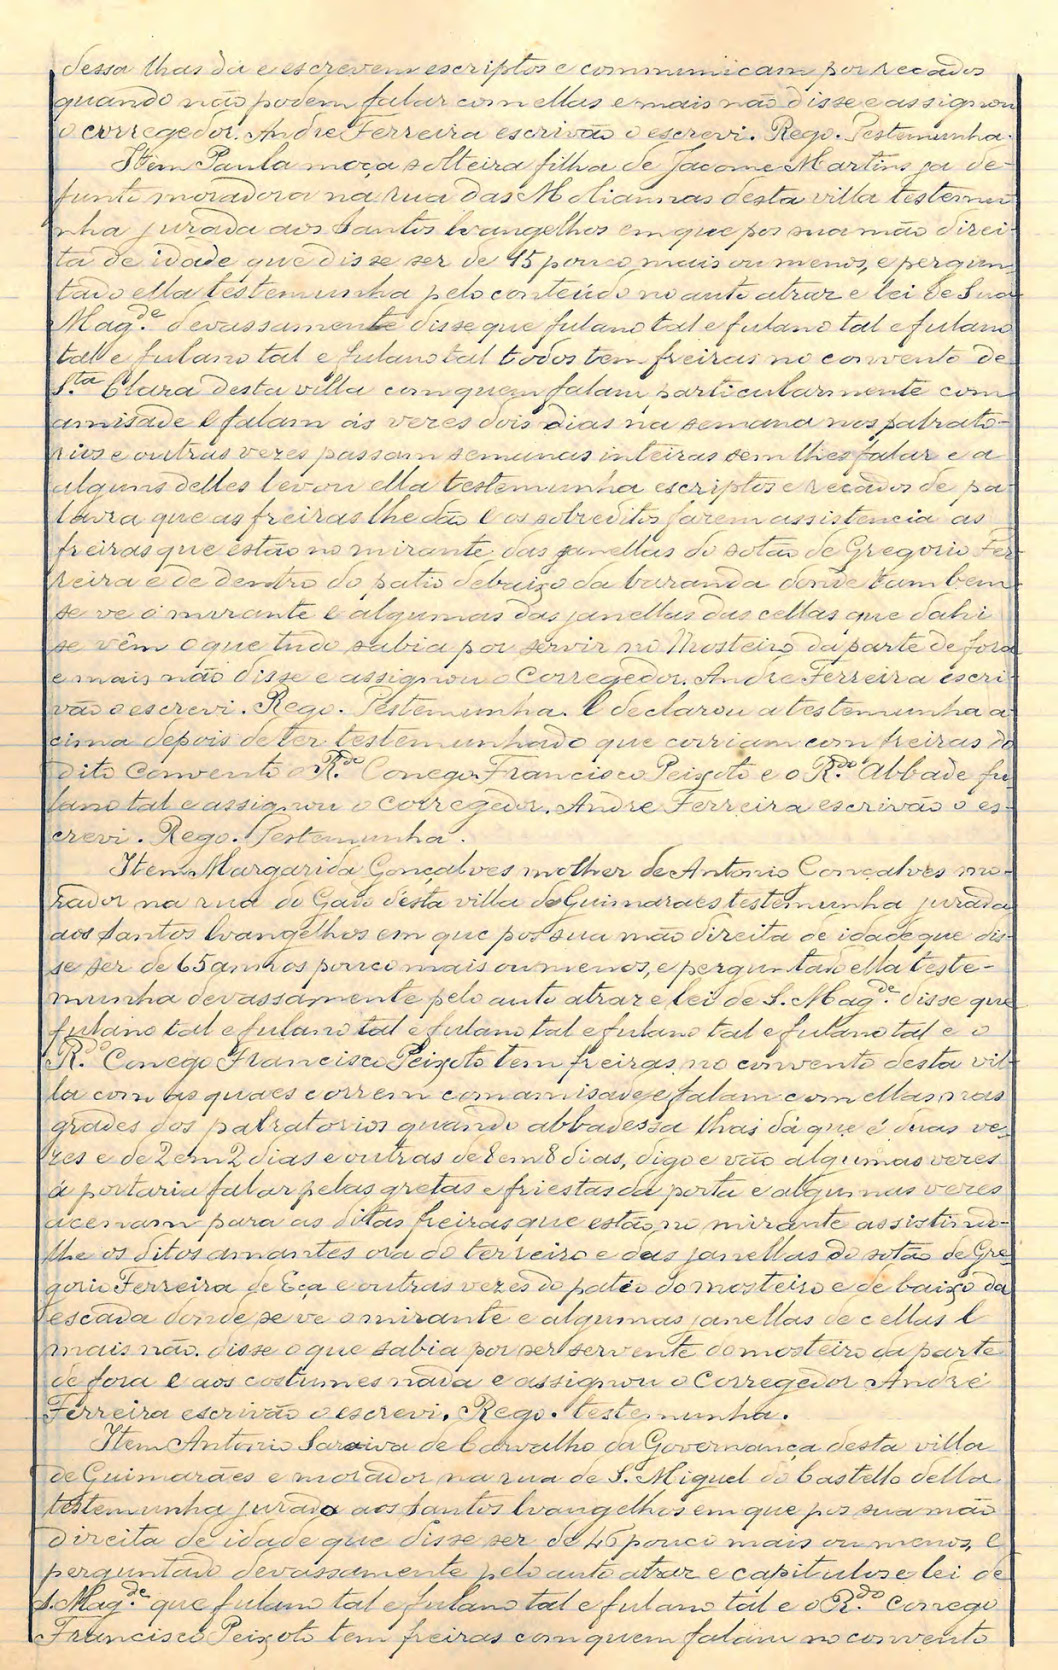 dessa lhas dá e escrevem escriptos e communicam por recados
quando não podem falar com ellas e mais não disse e assignou
o corregedor. André Ferreira escrivão o escrevi. Rego. Testemunha.
Item Paula moça solteira filha de Jacome Martins ja de-
funto moradora na rua das Molianas desta villa testemu-
nha jurada aos Santos Evangelhos em que pos sua mão direi-
ta de idade que disse ser de 45 pouco mais ou menos, e pergun-
tado ella testemunha pelo conteúdo no auto atraz e lei de Sua
Mag.de devassamente disse que fulano tal e fulano tal e fulano
tal e fulano tal e fulano tal todos tem freiras no convento de
S.ta Clara desta villa com quem falam particularmente com
amisade e falam ás vezes dois dias na semana nos palrato-
rios e outras vezes passam semanas inteiras sem lhes falar e a
alguns delles levou ella testemunha escriptos e recados de pa-
lavra que as freiras lhe dão e os sobreditos fazem assistencia as
freiras que estão no mirante das janellas do sotão de Gregorio Fer-
reira e de dentro do patio debaixo da varanda donde tambem
se ve o mirante e algumas das janellas das cellas que dahi
se vêm o que tudo sabia por servir no Mosteiro da parte de fora
e mais não disse e assignou o Corregedor. André Ferreira escri-
vão o escrevi. Rego. Testemunha. E declarou a testemunha a-
cima depois de ter testemunhado que corriam com freiras do
dito Convento o R.do Conego Francisco Peixoto e o R.do Abbade fu-
lano tal e assignou o corregedor. André Ferreira escrivão o es-
crevi. Rego. Testemunha.
Item Margarida Gonçalves molher de Antonio Gonçalves mo-
rador na rua do Gado desta villa de Guimarães testemunha jurada
aos Santos Evangelhos em que pos sua mão direita de idade que dis-
se ser de 65 annos pouco mais ou menos, e perguntado ella teste-
munha devassamente pelo auto atraz e lei de S. Mag.de disse que
fulano tal e fulano tal e fulano tal e fulano tal e fulano tal e o
R.do Conego Francisco Peixoto tem freiras no convento desta vil-
la com as quaes correm com amisade e falam com ellas nas
grades dos palratorios quando abbadessa lhas dá que é duas ve-
zes e de 2 em 2 dias e outras de 8 em 8 dias, digo e vão algumas vezes
á portaria falar pelas gretas e friestas da porta e algumas vezes
acenam para as ditas freiras que estão no mirante assistindo-
lhe os ditos amantes ora do terreiro e das janellas do sotão de Gre-
gorio Ferreira de Eça e outras vezes do pateo do mosteiro e de baixo da
escada donde se ve o mirante e algumas janellas de cellas e
mais não disse o que sabia por ser servente do mosteiro da parte
de fora e aos costumes nada e assignou o Corregedor André
Ferreira escrivão o escrevi. Rego. testemunha.
Item Antonio Saraiva de Carvalho da Governança desta villa
de Guimarães e morador na rua de S. Miguel do Castello della
testemunha jurado aos Santos Evangelhos em que pos sua mão
direita de idade que disse ser de 46 pouco mais ou menos, e
perguntado devassamente pelo auto atraz e capitulos e lei de
S. Mag.de que fulano tal e fulano tal e fulano tal e o R.do Conego
Francisco Peixoto tem freiras com quem falam no convento